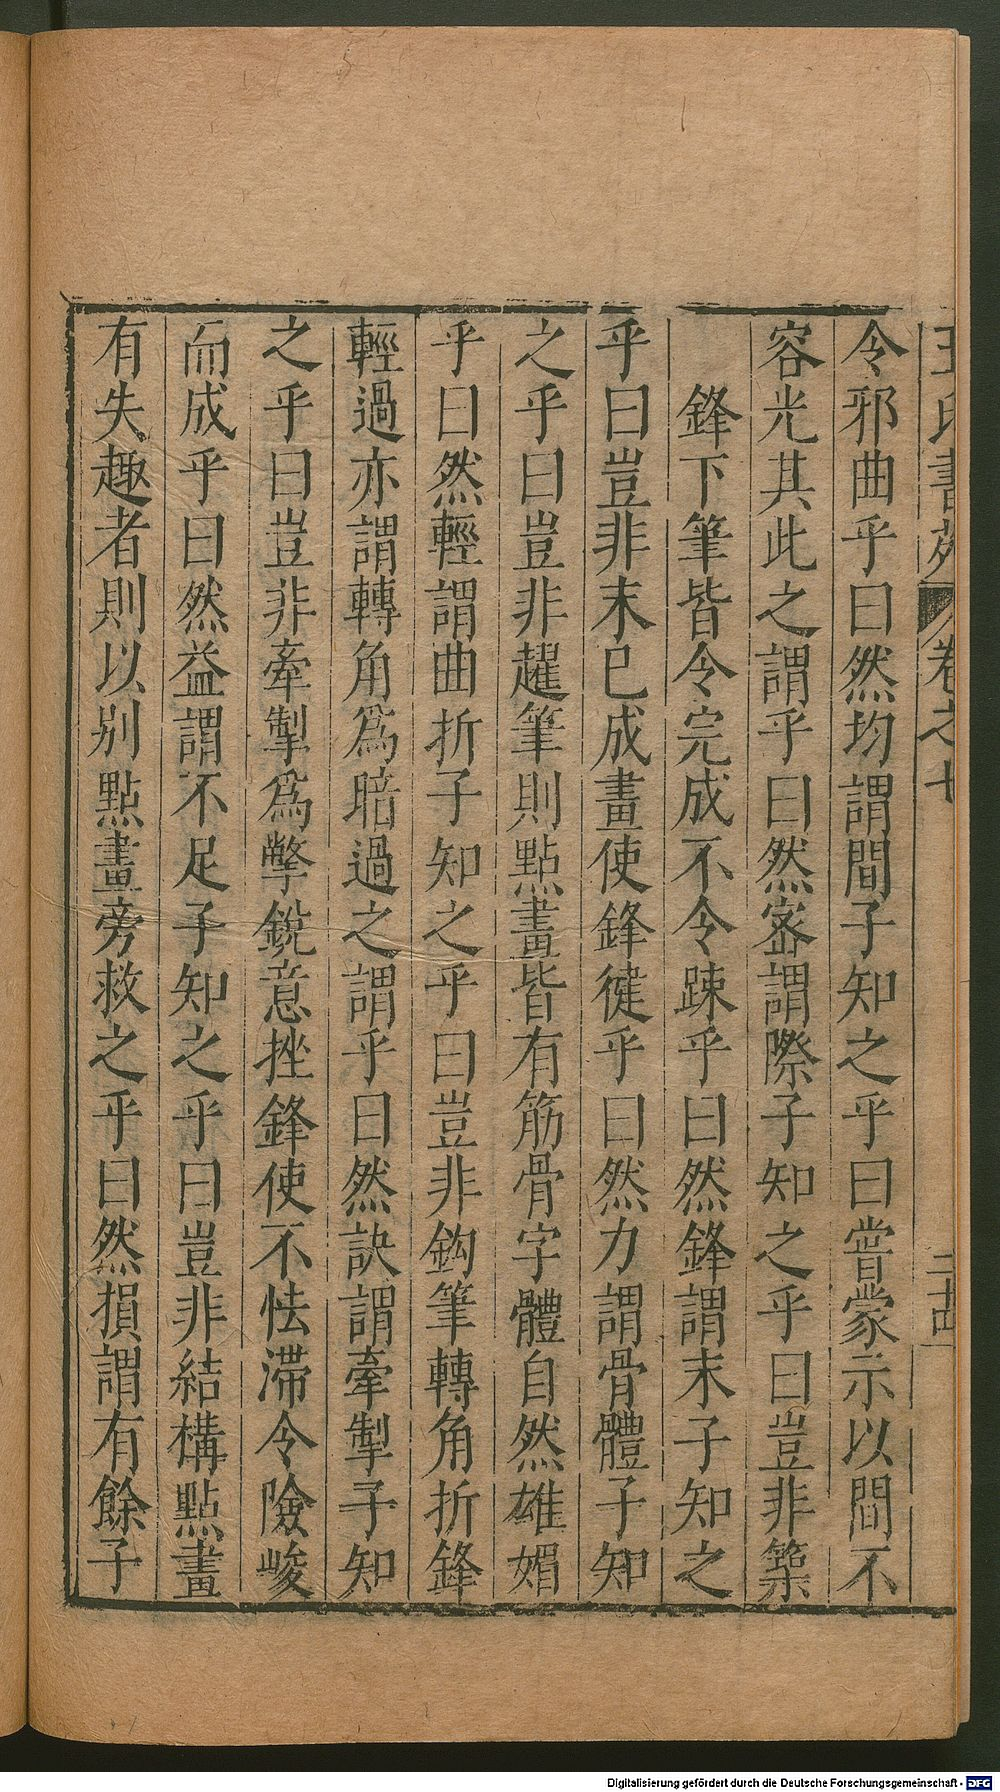 王氏書苑 卷之七 二十四
令邪曲乎曰然均謂間子知之乎曰嘗蒙示以間不
容光其此之謂乎曰然宻謂際子知之乎曰豈非築
鋒下筆皆令完成不令踈乎曰然鋒謂末子知之
乎曰豈非末已成畫使鋒徤乎曰然力謂骨體子知
之乎曰豈非趯筆則點畫皆有筋骨字體自然雄媚
乎曰然輕謂曲折子知之乎曰豈非鈎筆轉角折鋒
輕過亦謂轉角為暗過之謂乎曰然訣謂牽掣子知
之乎曰豈非牽掣為撆銳意挫鋒使不怯滯令險峻
而成乎曰然益謂不足子知之乎曰豈非結構點畫
有失趣者則以别點畫旁救之乎曰然損謂有餘子
Digitalisierung gefördert durch die Deutsche Forschungsgemeinschaft - DFG